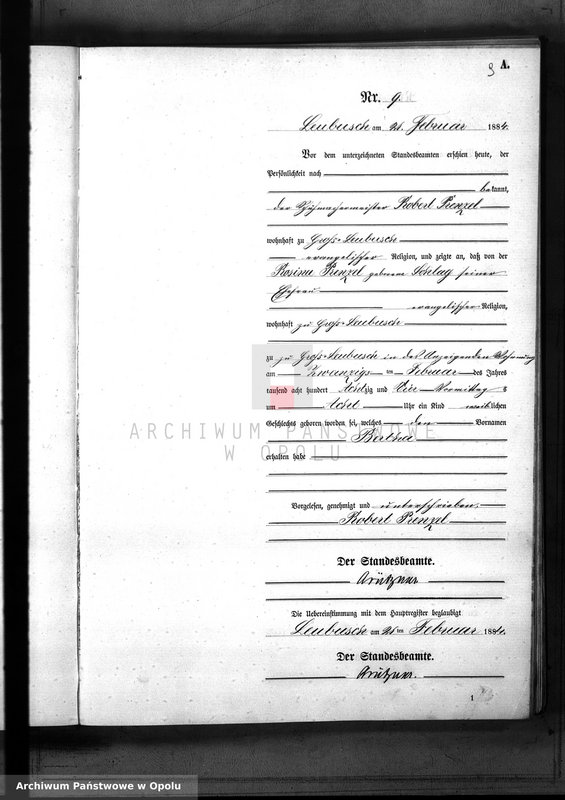 9 A.
Nr. 9.
Leubusch am 21. Februar 1884.
Vor dem unterzeichneten Standesbeamten erschien heute, der
Persönlichkeit nach
bekannt,
der Schuhmachermeister Robert Prenzel
wohnhaft zu Groß-Leubusch
evangelischer Religion, und zeigte an, daß von der
Rosina Prenzel geborene Schlag seiner
Ehefrau
evangelischer Religion,
wohnhaft zu Groß-Leubusch
zu zu Groß-Leubusch in des Anzeigenden Wohnung
am Zwanzigsten Februar des Jahres
tausend acht hundert Achtzig und Vier Vormittag s
um Acht Uhr ein Kind weiblichen
Geschlechts geboren worden sei, welches den Vornamen
Bertha
erhalten habe
Vorgelesen, genehmigt und unterschrieben.
Robert Prenzel
Der Standesbeamte.
Die Uebereinstimmung mit dem Hauptregister beglaubigt
Leubusch am 21 ten Februar 1884.
Der Standesbeamte.
1
ARCHIWUM PAŃSTWOWE
W OPOLU
Archiwum Państwowe w Opolu